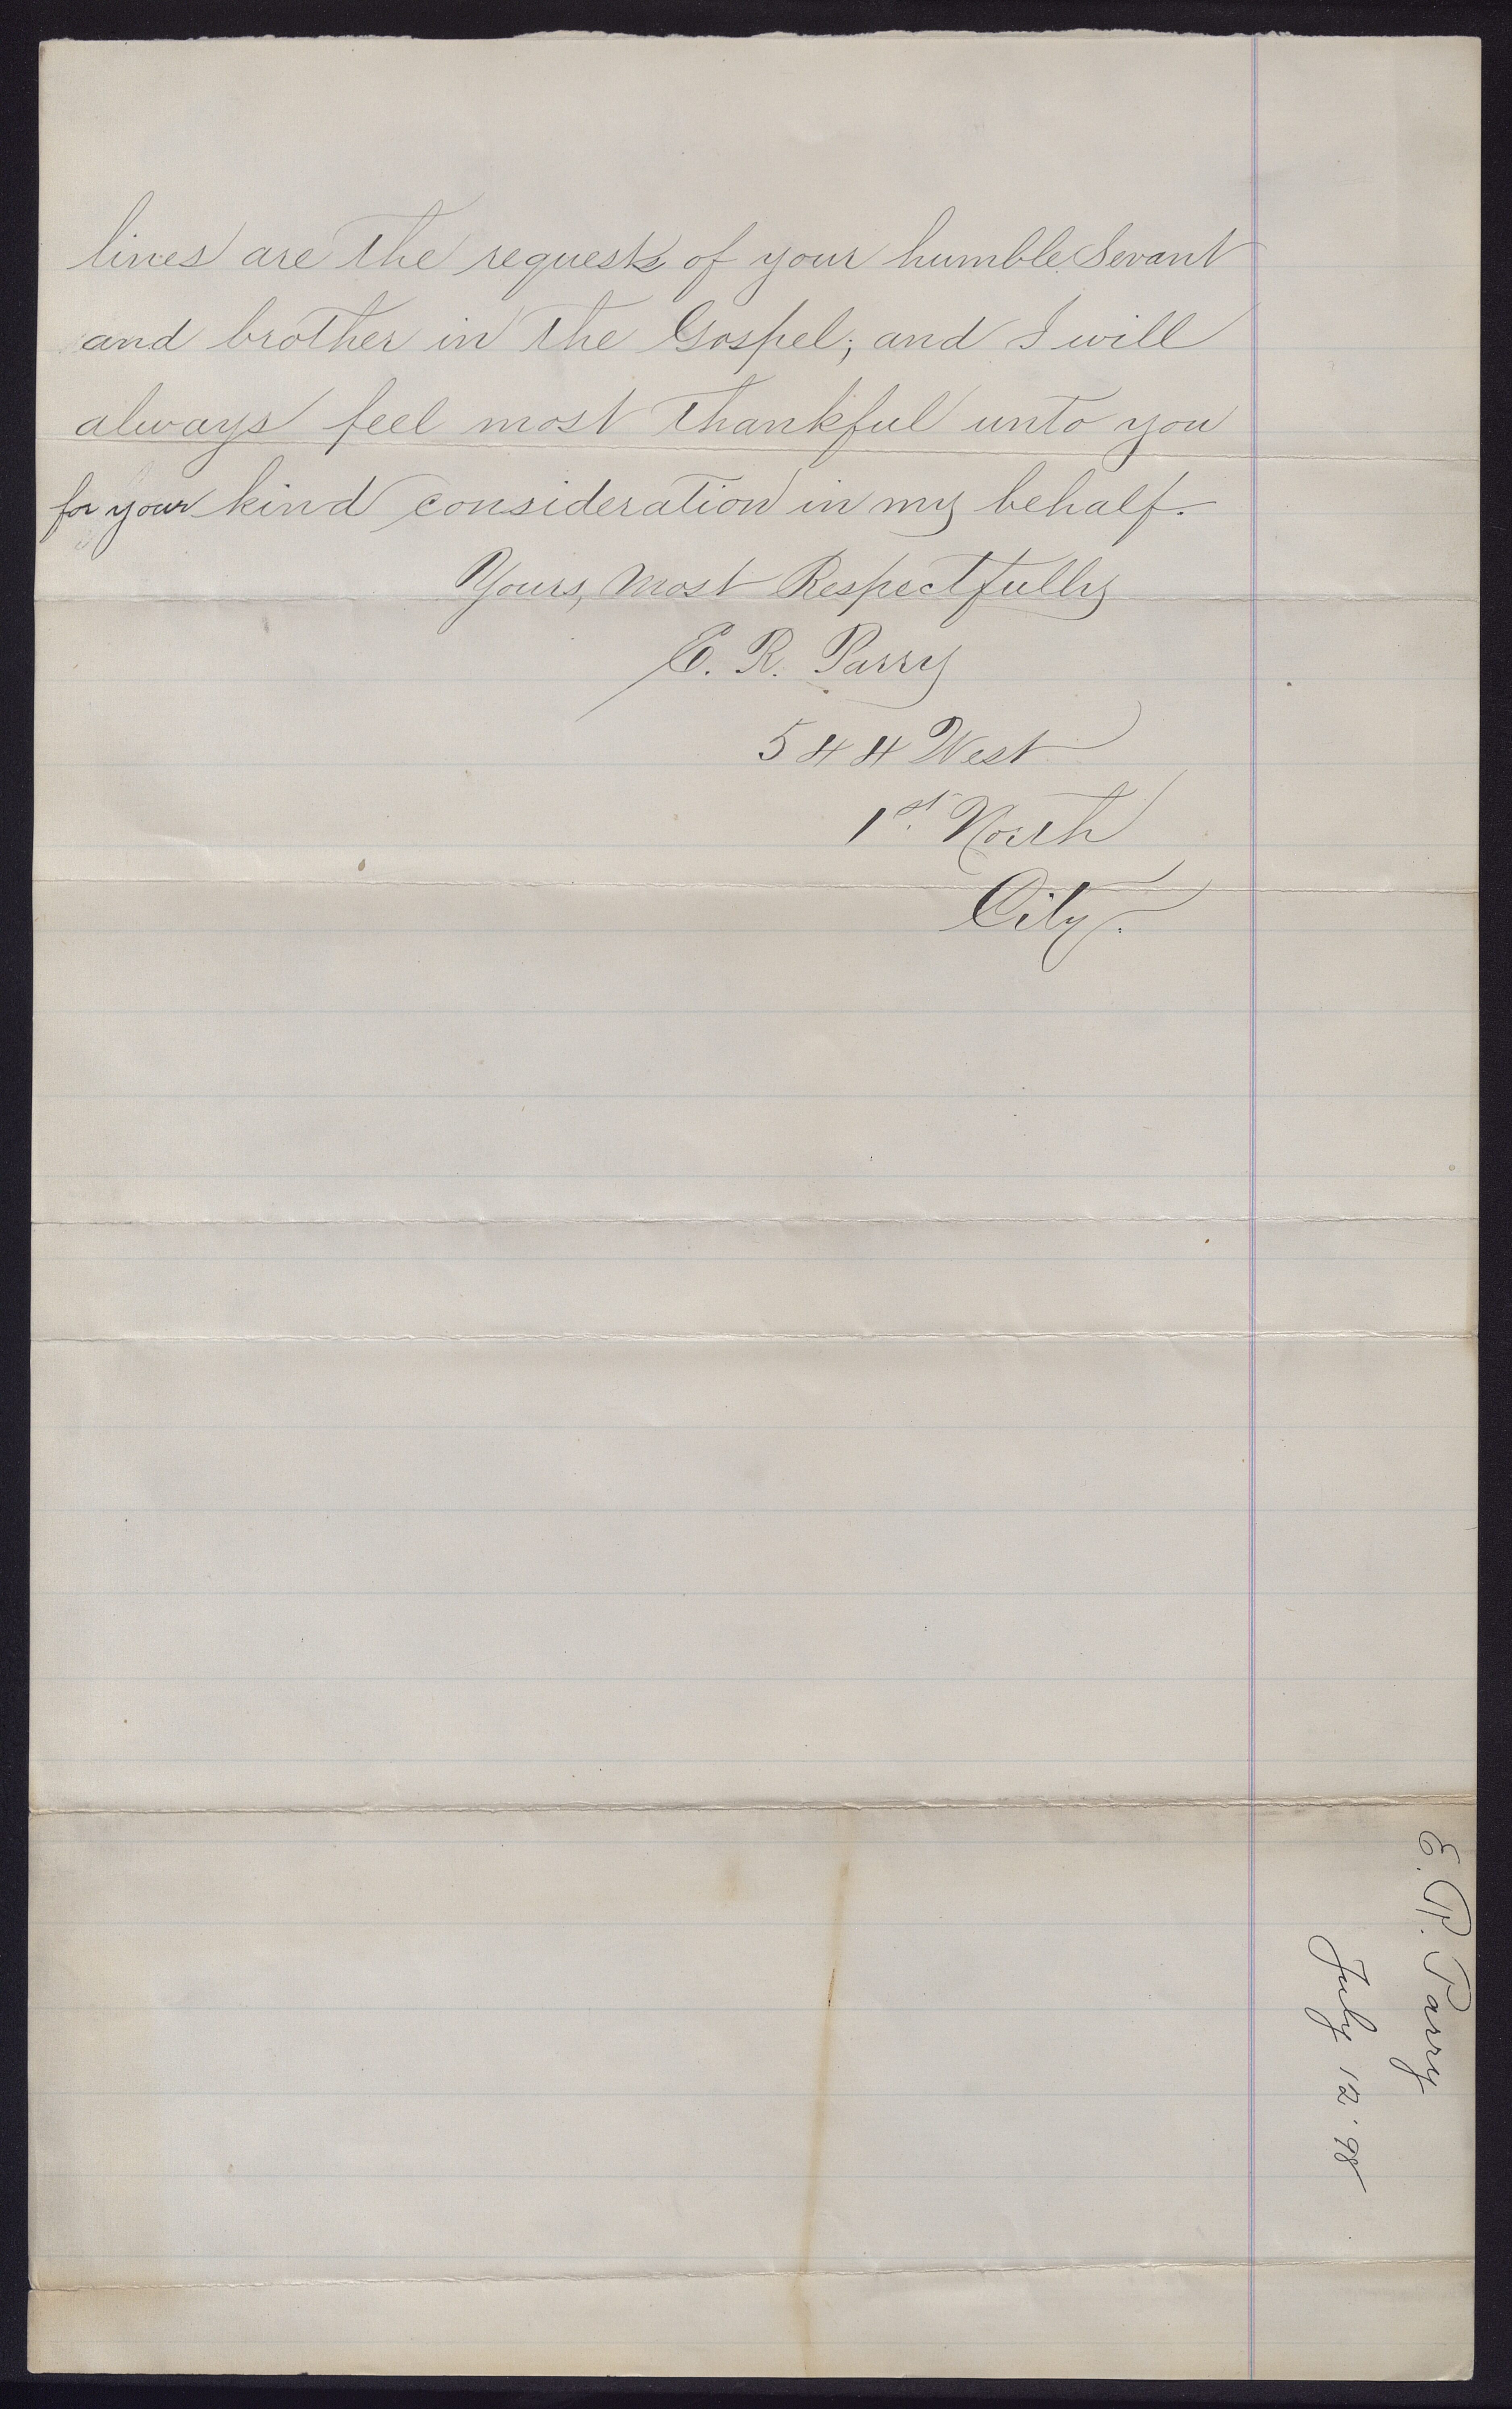 lines are the requests of your humble Sevant
and brother in the Gospel; and I will
always feel most thankful unto you
for your kind consideration in my behalf.
Yours, Most Respectfully
E. R. Parry
544 West
1st. North
City.
E. R. Parry
July 12 '98